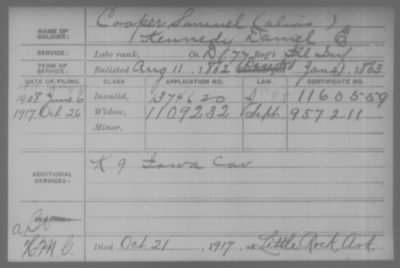 NAME OF SOLDIER: Cooper, Samuel (Alias)
Kennedy Daniel C
SERVICE: Late rank, Co. D, 77 Reg't Ill Inf
TERM OF SERVICE: Enlisted Aug 11, 1862 Jan 1863
DATE OF FILING. CLASS. APPLICATION NO. LAW. CERTIFICATE NO.
1908 June 6 Invalid, 1374620 1160559
1917 Oct 26 Widow, 1109232 Sept. 957211
Minor,
ADDITIONAL SERVICES: K 9 Iowa Cav
Died Oct. 21 1917, at Little Rock Ark.